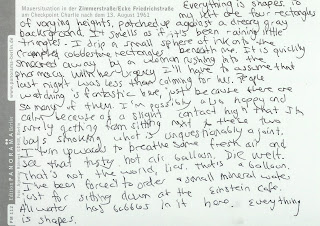 Mauersituation in der Zimmerstraße/Ecke Friedrichstraße
am Checkpoint Charlie nach dem 13. August 1961
Everything is shapes. To
my left are four rectangles
of varying heights, patched up against a dreary gray
background. It smells as if it's been raining little
triangles. I drip a small sphere of ink onto the
cramped cobblestone rectangles beneath me. It is quickly
smeared away by a woman rushing into the
pharmacy. With her urgency I'll have to assume that
last night was less than calming for her. People
watching is fantastic here, just because there are
so many of them. I'm possibly also happy and
calm because of a slight contact high that I'm
surely getting from sitting next to these two
boys smoking what is unquestionably a joint.
I turn upwards to breathe some fresh air and
see that tasty hot air balloon. Die Welt.
That's not the world, liar. That's a balloon.
I've been forced to order a small mineral water
just for sitting down at the Einstein Cafe.
All water has bubbles in it here. Everything
is shapes.
Edition PANORAMA Berlin